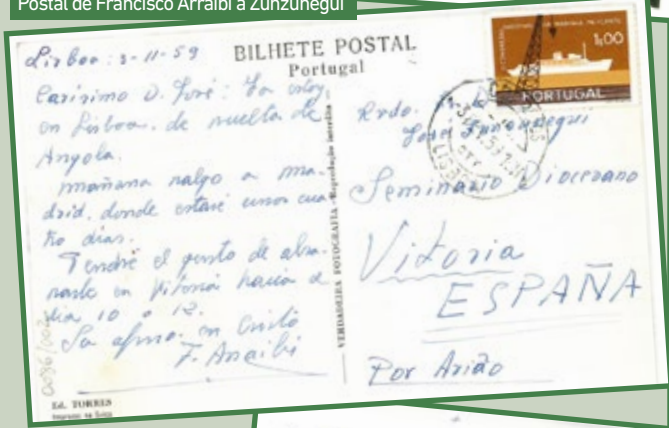 Postal de Francisco Arraibi a Zunzunegui
Lisboa: 3-11-59
BILHETE POSTAL
Portugal
Carísimo D. José: Ya estoy
en Lisboa. de vuelta de
Angola.
mañana salgo a ma-
drid. donde estaré unos cua
tro dias.
Tendré el gusto de abra-
zarle en Vitoria hacia el
dia 10 o 12.
Su afmo. en Cristo
F. Arraibi
0036/002
Ed. TORRES
VERDADEIRA FOTOGRAFIA - Reprodução interdita
1$00
PORTUGAL
Rvdo.
José Zunzunegui
Seminario Diocesano
Vitoria
ESPAÑA
Por Avião